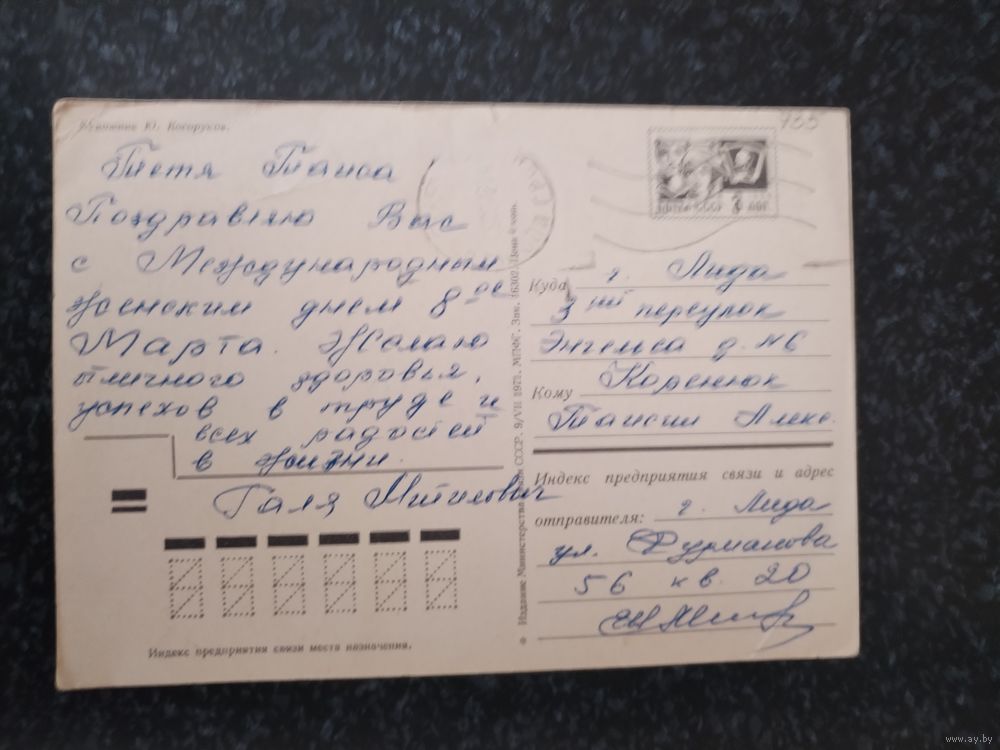 Художник Ю. Косоруков.
Тетя Таиса
Поздравляю Вас
с Международным
женским днем 8-ое
Марта. Желаю
отличного здоровья,
успехов в труде и
всех радостей
в жизни.
Галя
Индекс предприятия связи места назначения.
Издание Министерства связи СССР. 9/VII 1971. МПФГ. Зак. Цена 4 коп.
ПОЧТА СССР 3 КОП
Куда г. Лида
3ий переулок
Энгельса д. № 6
Кому Коренюк
Таисии Алекс.
Индекс предприятия связи и адрес
отправителя: г. Лида
ул. Фурманова
56 кв. 20
www.ay.by